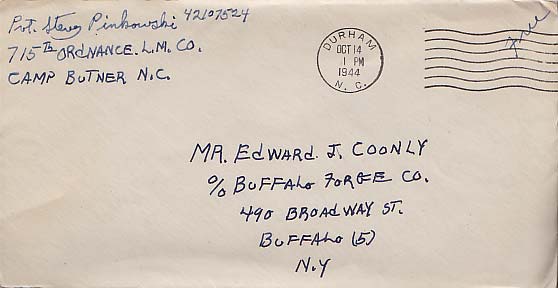 Pvt. Steve Pinkowski 42107524
715th ORDNANCE. L.M. CO.
CAMP BUTNER N.C.
DURHAM
OCT 14
1 PM
1944
N. C.
Free
MR. EDWARD J. COONLY
% BUFFALO FORGE CO.
490 BROADWAY ST.
BUFFALO (5)
N.Y